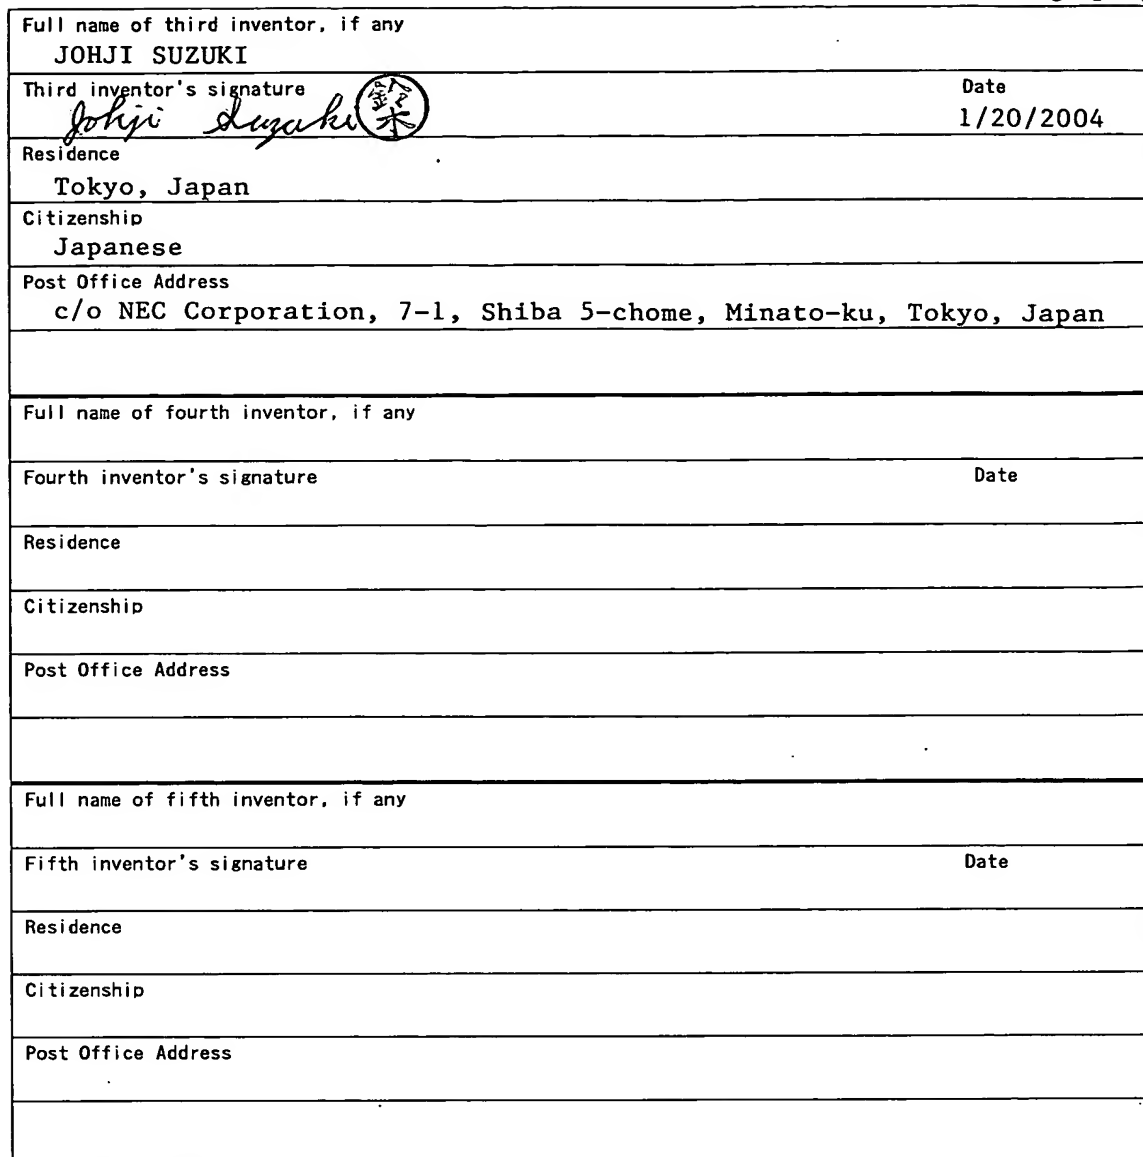 Full name of third inventor, if any
JOHJI SUZUKI
Third inventor's signature Date
Johji Suzuki 鈴木 1/20/2004
Residence
Tokyo, Japan
Citizenship
Japanese
Post Office Address
c/o NEC Corporation, 7-1, Shiba 5-chome, Minato-ku, Tokyo, Japan
Full name of fourth inventor, if any
Fourth inventor's signature Date
Residence
Citizenship
Post Office Address
Full name of fifth inventor, if any
Fifth inventor's signature Date
Residence
Citizenship
Post Office Address